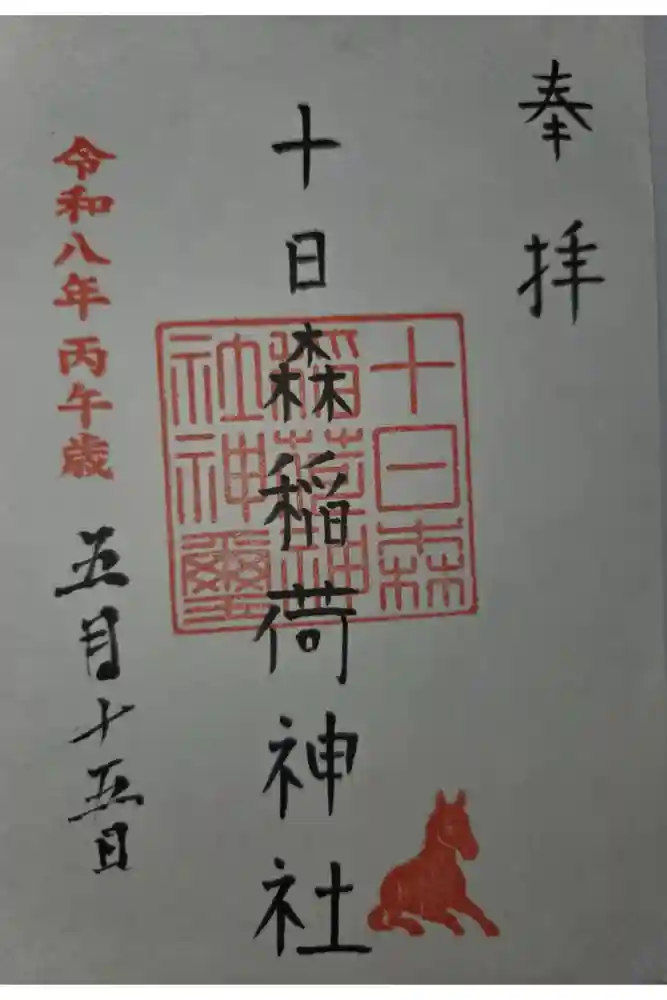 奉拝
十日森稲荷神社
十日森
稲荷神
社神璽
令和八年丙午歳
五月十五日